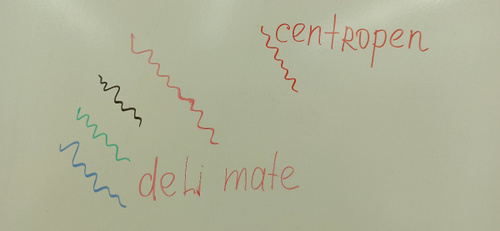 centropen
deli mate